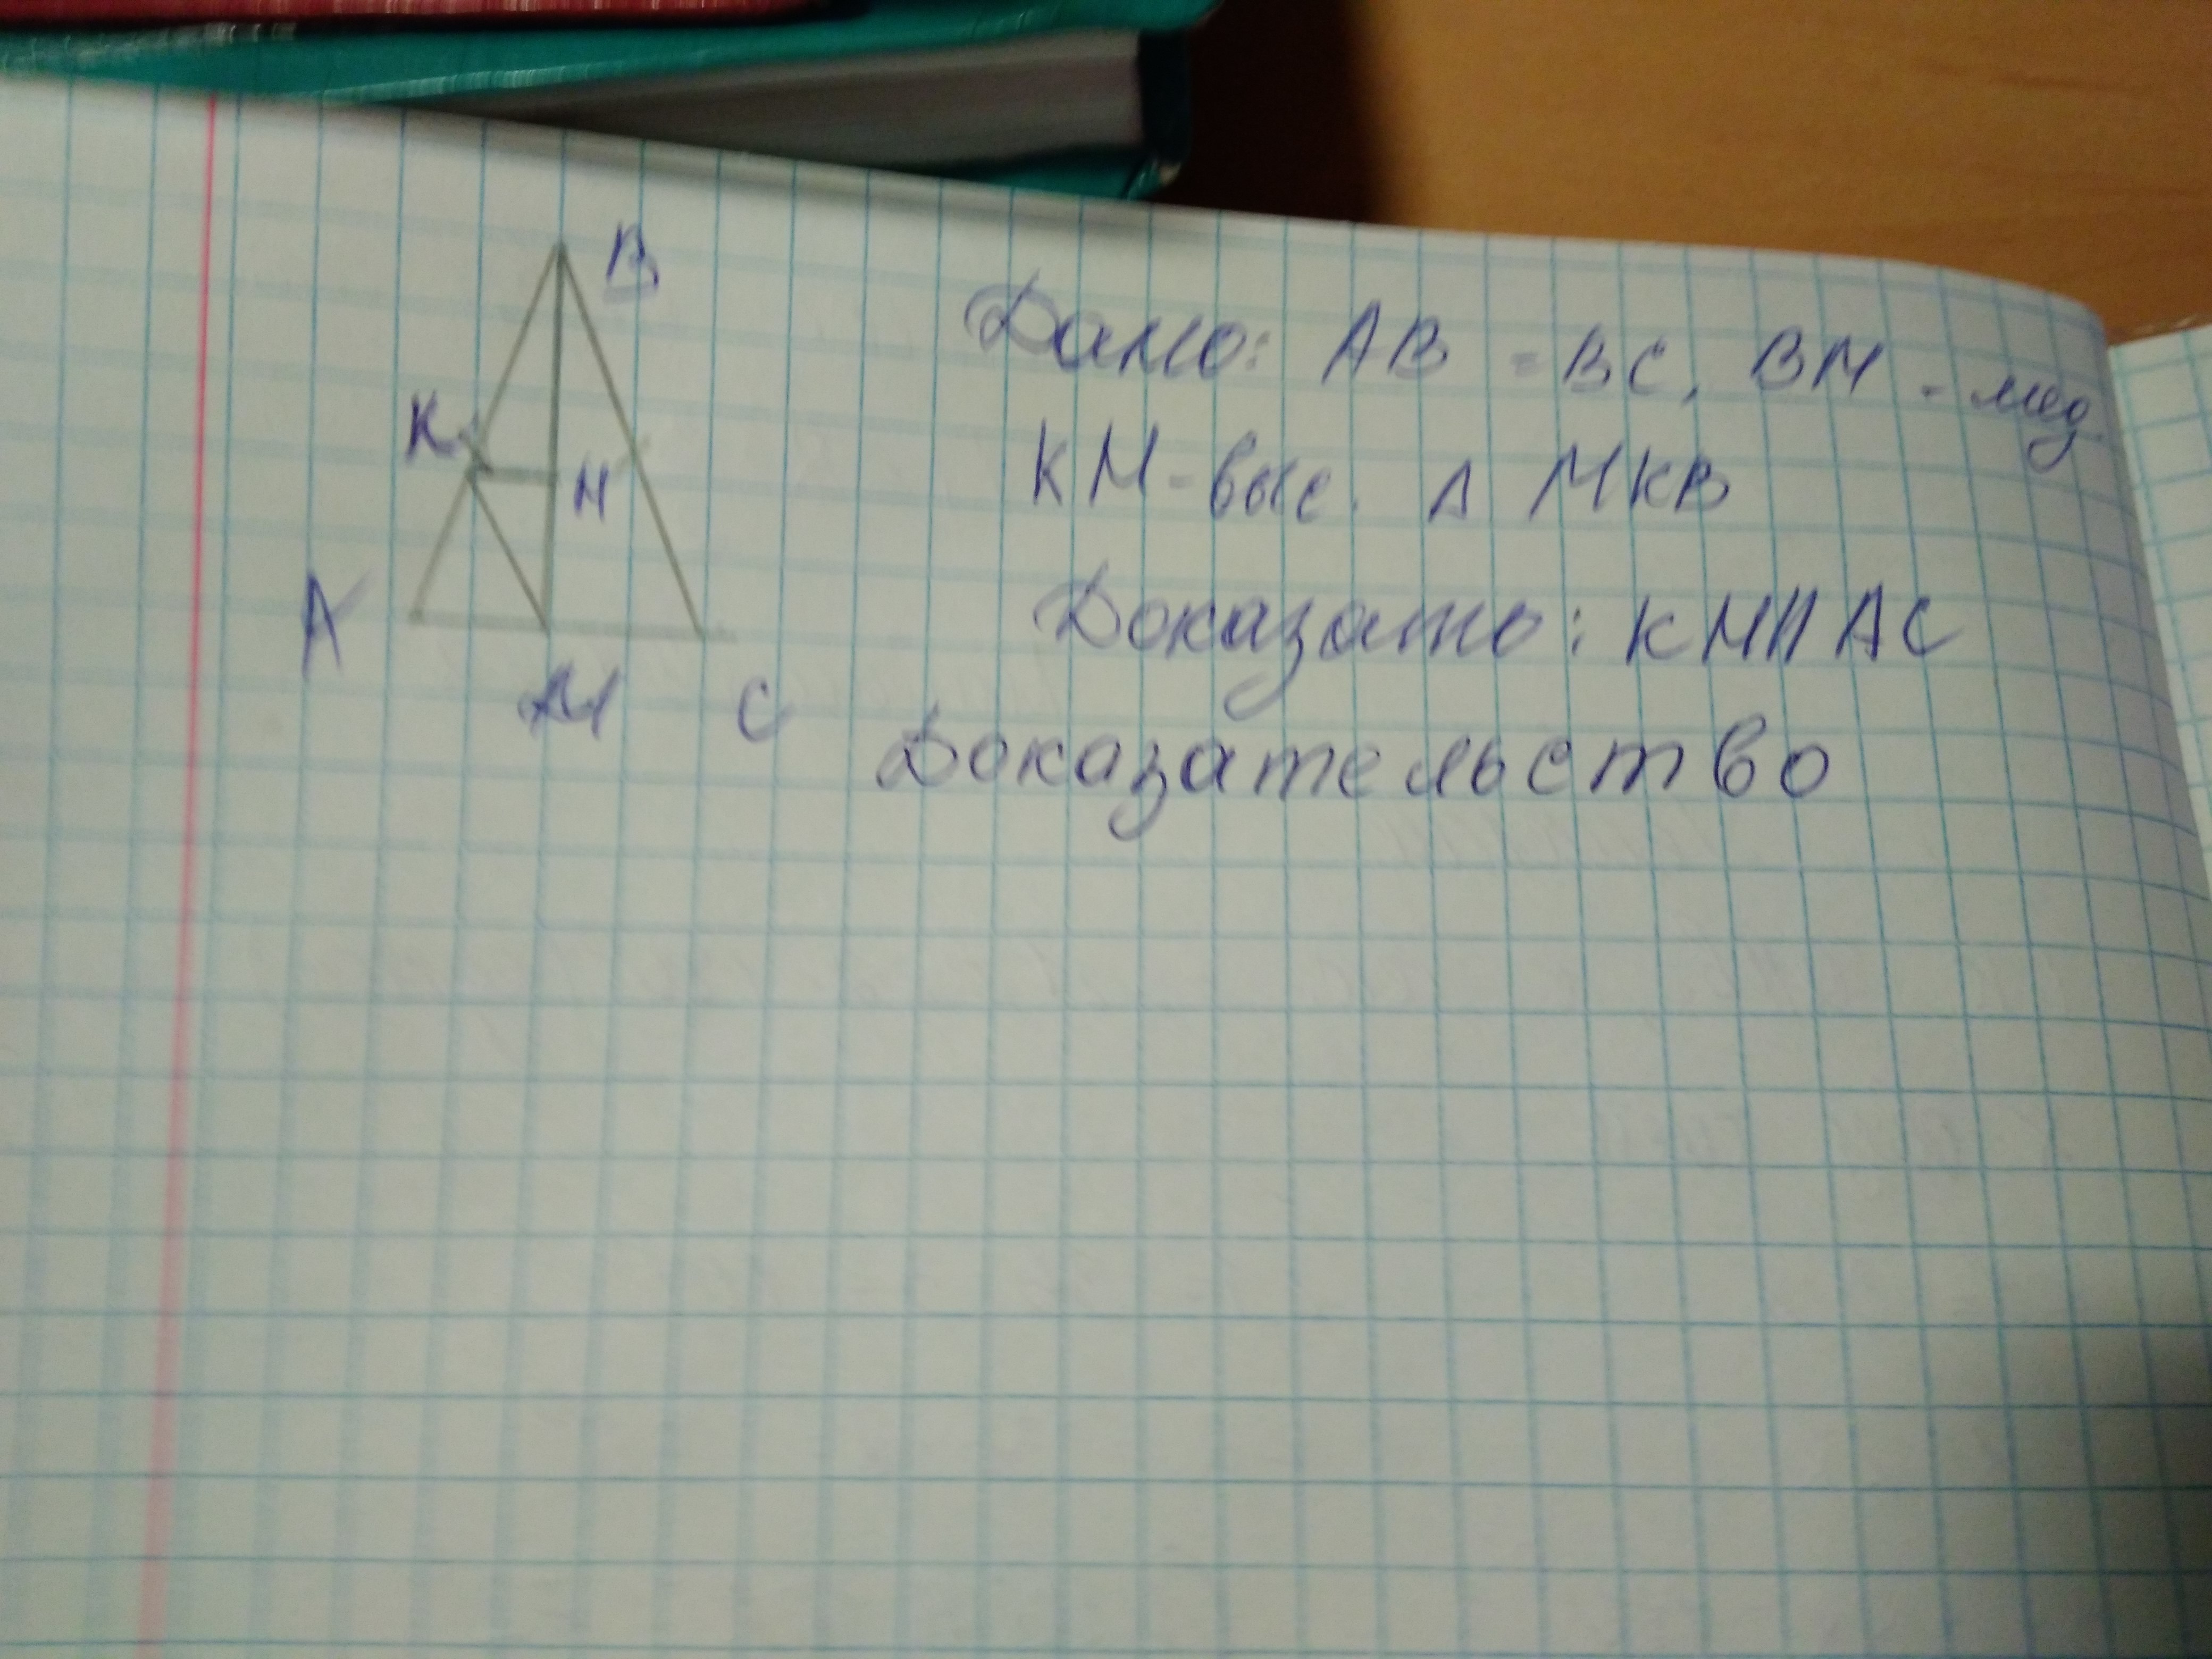 B
K
H
A
M
C
Дано: AB = BC, BM - мед
KH - выс. Δ MKB
Доказать: KH ∥ AC
Доказательство